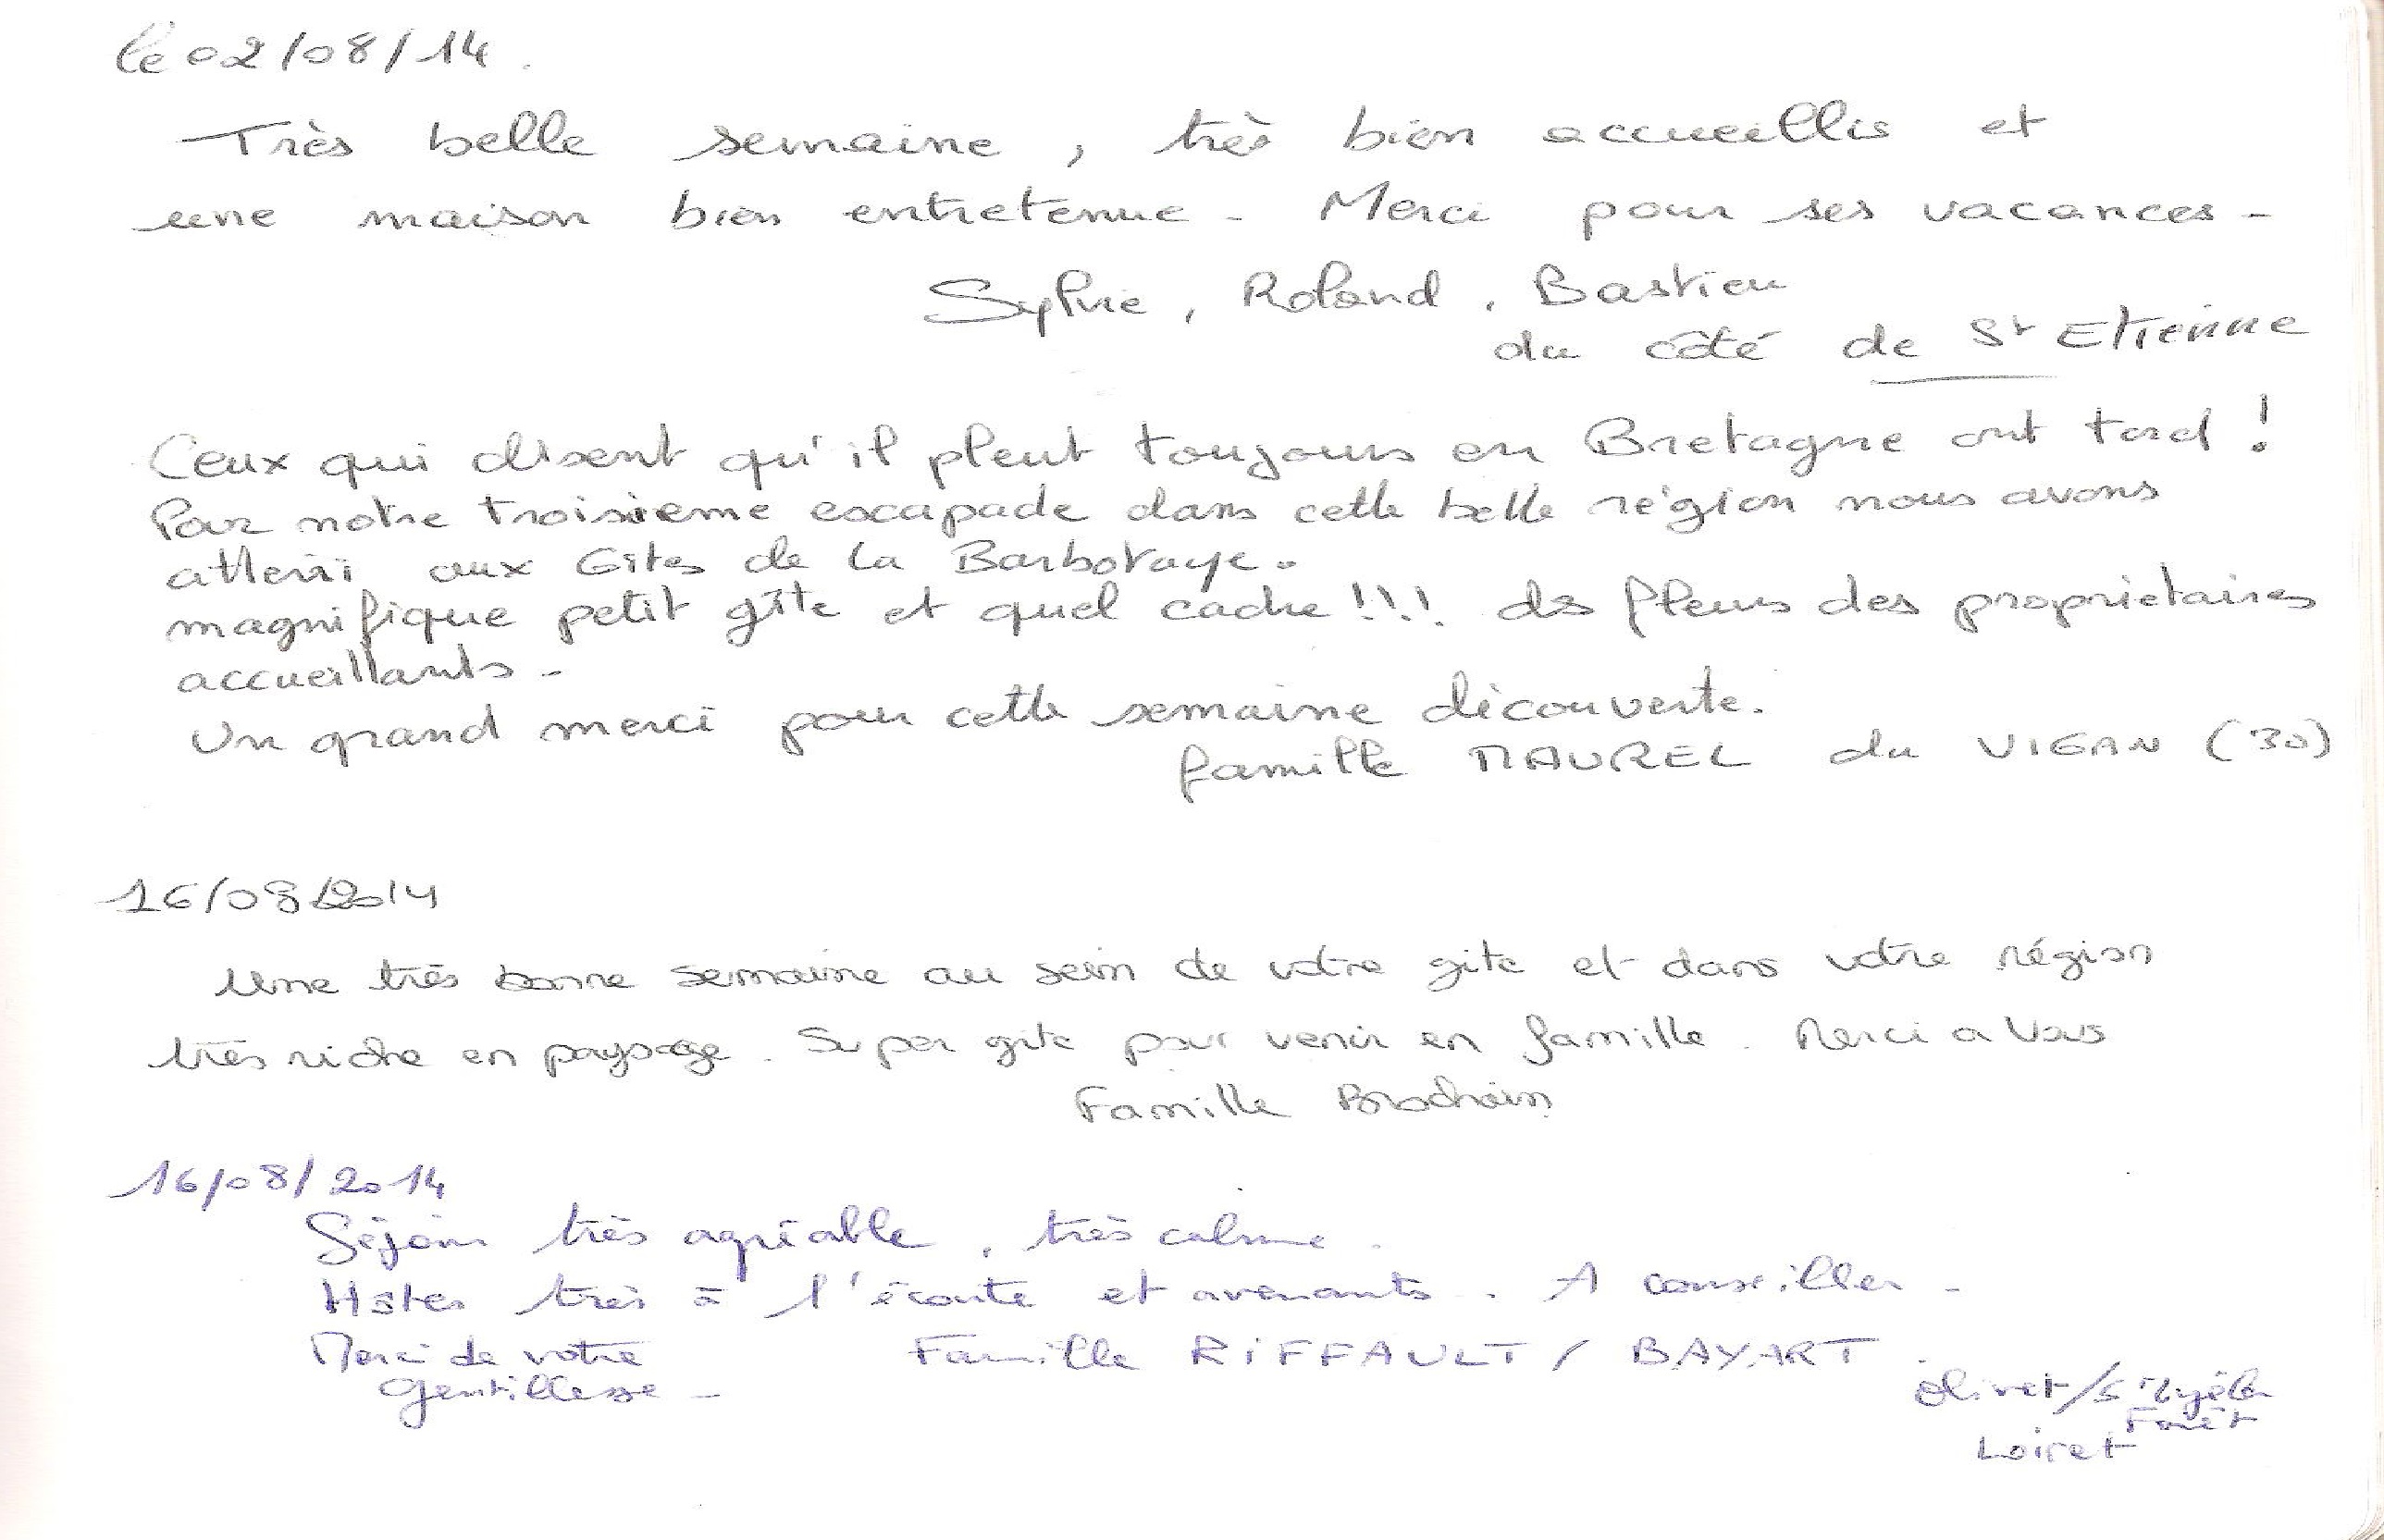 le 02/08/14.
Très belle semaine, très bien accueillis et
une maison bien entretenue - Merci pour ses vacances -
Sylvie, Roland, Bastien
du côté de St Etienne
Ceux qui disent qu'il pleut toujours en Bretagne ont tord !
Pour notre troisième escapade dans cette belle région nous avons
atterri aux Gîtes de la Barbotaye.
magnifique petit gîte et quel cadre !!! des fleurs des propriétaires
accueillants -
Un grand merci pour cette semaine découverte.
famille MAUREL du VIGAN (30)
16/08/2014
Une très bonne semaine au sein de votre gite et dans votre région
très riche en paysage. Super gite pour venir en famille. Merci a Vous
Famille Brochain
16/08/2014
Séjour très agréable, très calme.
Hôtes très à l'écoute et avenants. A conseiller -
Merci de votre Famille RIFFAULT / BAYART
gentillesse -
Olivet/
Forêt
Loiret